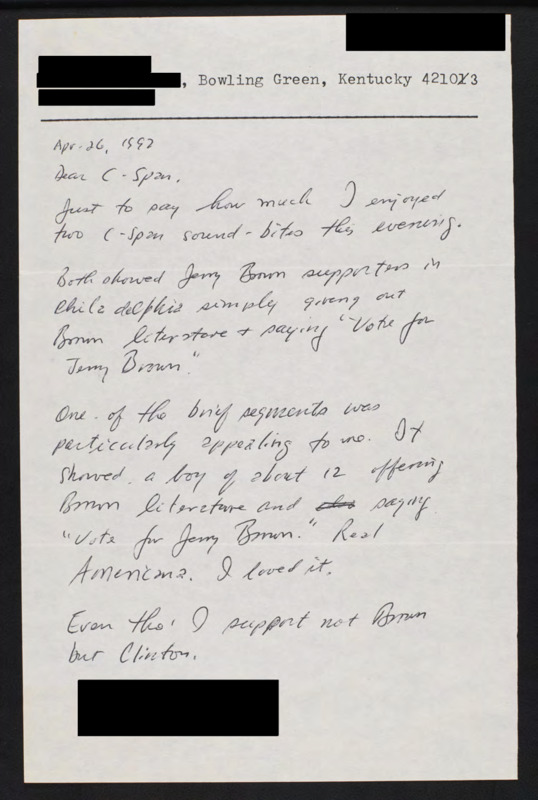 , Bowling Green, Kentucky 42103
Apr. 26, 1992
Dear C-Span,
Just to say how much I enjoyed
two C-Span sound-bites this evening.
Both showed Jerry Brown supporters in
Philadelphia simply giving out
Brown literature + saying "Vote for
Jerry Brown."
One of the brief segments was
particularly appealing to me. It
showed a boy of about 12 offering
Brown literature and saying
"Vote for Jerry Brown." Real
Americana. I loved it.
Even tho' I support not Brown
but Clinton.